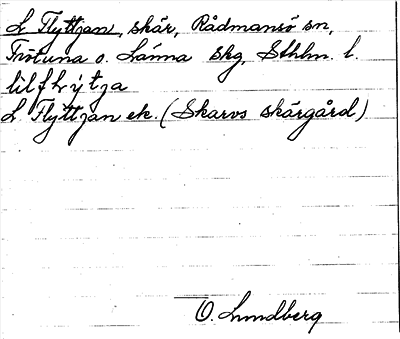 L Flyttjan, skär, Rådmansö sn,
Frötuna o. Länna skg, Sthlm. l.
lilflýtja
L Flyttjan ek. (Skarvs skärgård)
O. Lundberg